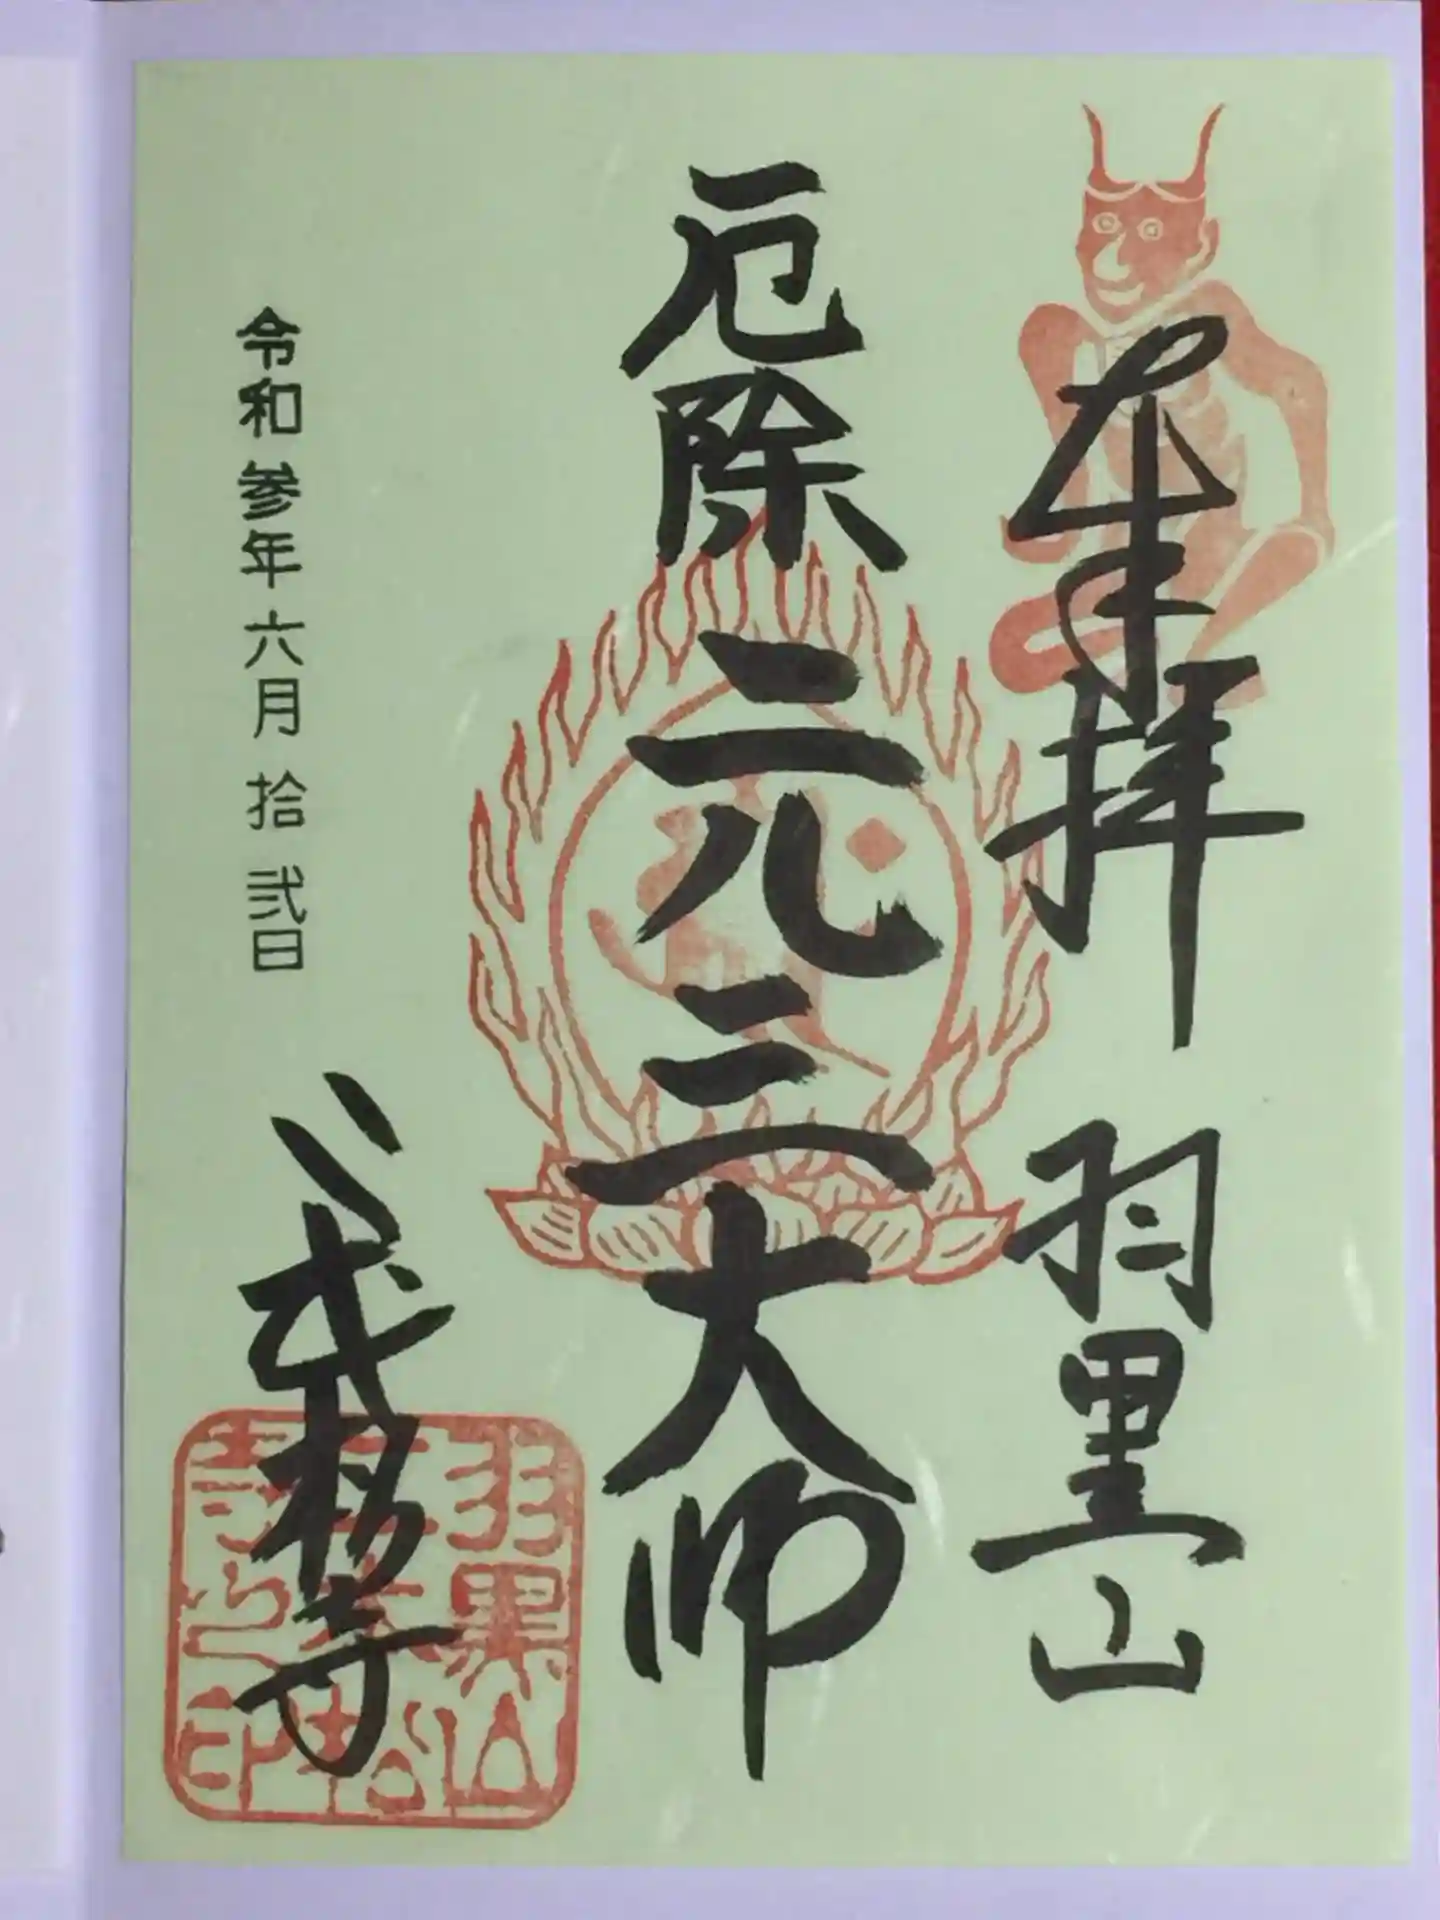 奉拝 羽黒山
厄除 元三大師
令和参年六月拾弐日
羽黒山
寺之印